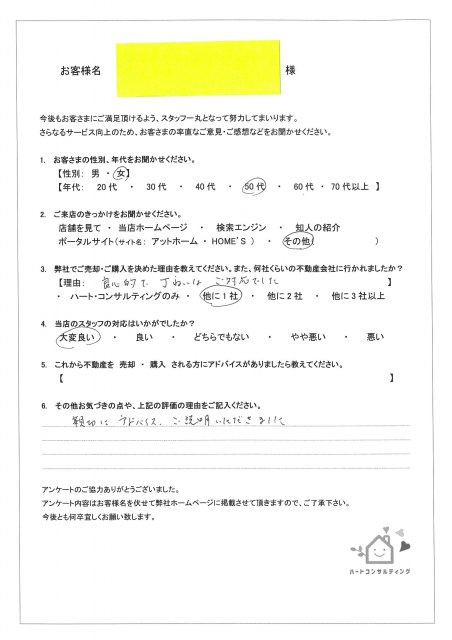 お客様名 様
今後もお客さまにご満足頂けるよう、スタッフ一丸となって努力してまいります。
さらなるサービス向上のため、お客さまの率直なご意見・ご感想などをお聞かせください。
1. お客さまの性別、年代をお聞かせください。
【性別: 男 ・ 女】
【年代: 20代 ・ 30代 ・ 40代 ・ 50代 ・ 60代 ・ 70代以上 】
2. ご来店のきっかけをお聞かせください。
店舗を見て ・ 当店ホームページ ・ 検索エンジン ・ 知人の紹介
ポータルサイト(サイト名: アットホーム ・ HOME'S ) ・ その他( )
3. 弊社でご売却・ご購入を決めた理由を教えてください。また、何社くらいの不動産会社に行かれましたか?
【理由: 良心的で 丁ねいな ご対応でした 】
・ ハート・コンサルティングのみ ・ 他に1社 ・ 他に2社 ・ 他に3社以上
4. 当店のスタッフの対応はいかがでしたか?
大変良い ・ 良い ・ どちらでもない ・ やや悪い ・ 悪い
5. これから不動産を 売却 ・ 購入 される方にアドバイスがありましたら教えてください。
【 】
6. その他お気づきの点や、上記の評価の理由をご記入ください。
親切に アドバイス、ご説明いただきました
アンケートのご協力ありがとうございました。
アンケート内容はお客様名を伏せて弊社ホームページに掲載させて頂きますので、ご了承下さい。
今後とも何卒宜しくお願い致します。
ハートコンサルティング